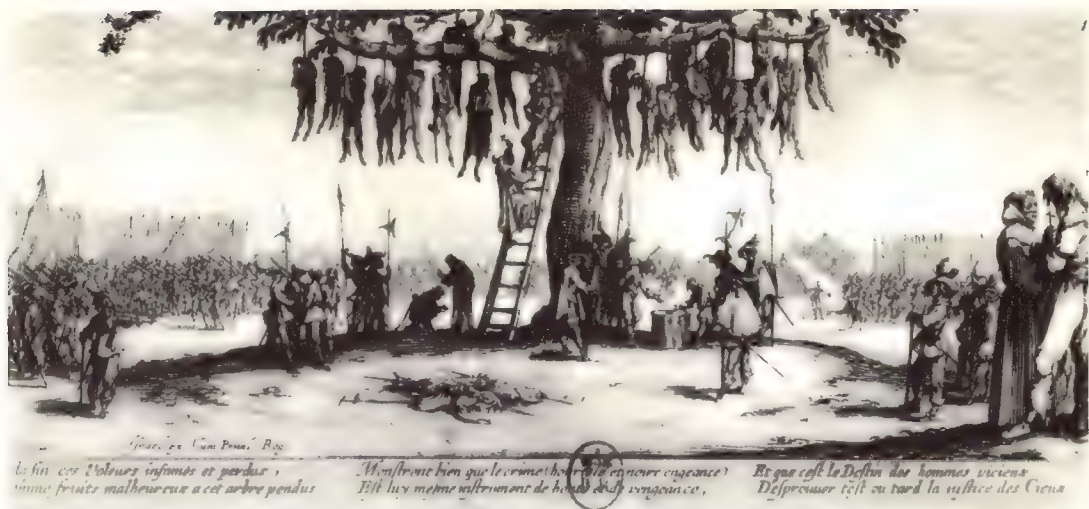 ex Cum Privil. Reg.
la fin ces Voleurs infames et perdus ,
fruits malheureux a cet arbre pendus
Monstrent bien que le crime (horrible et noire engeance)
Est luy mesme instrument de honte et de vengeance ,
Et que cest le Destin des hommes vicieux
Desprouver tost ou tard la iustice des Cieux